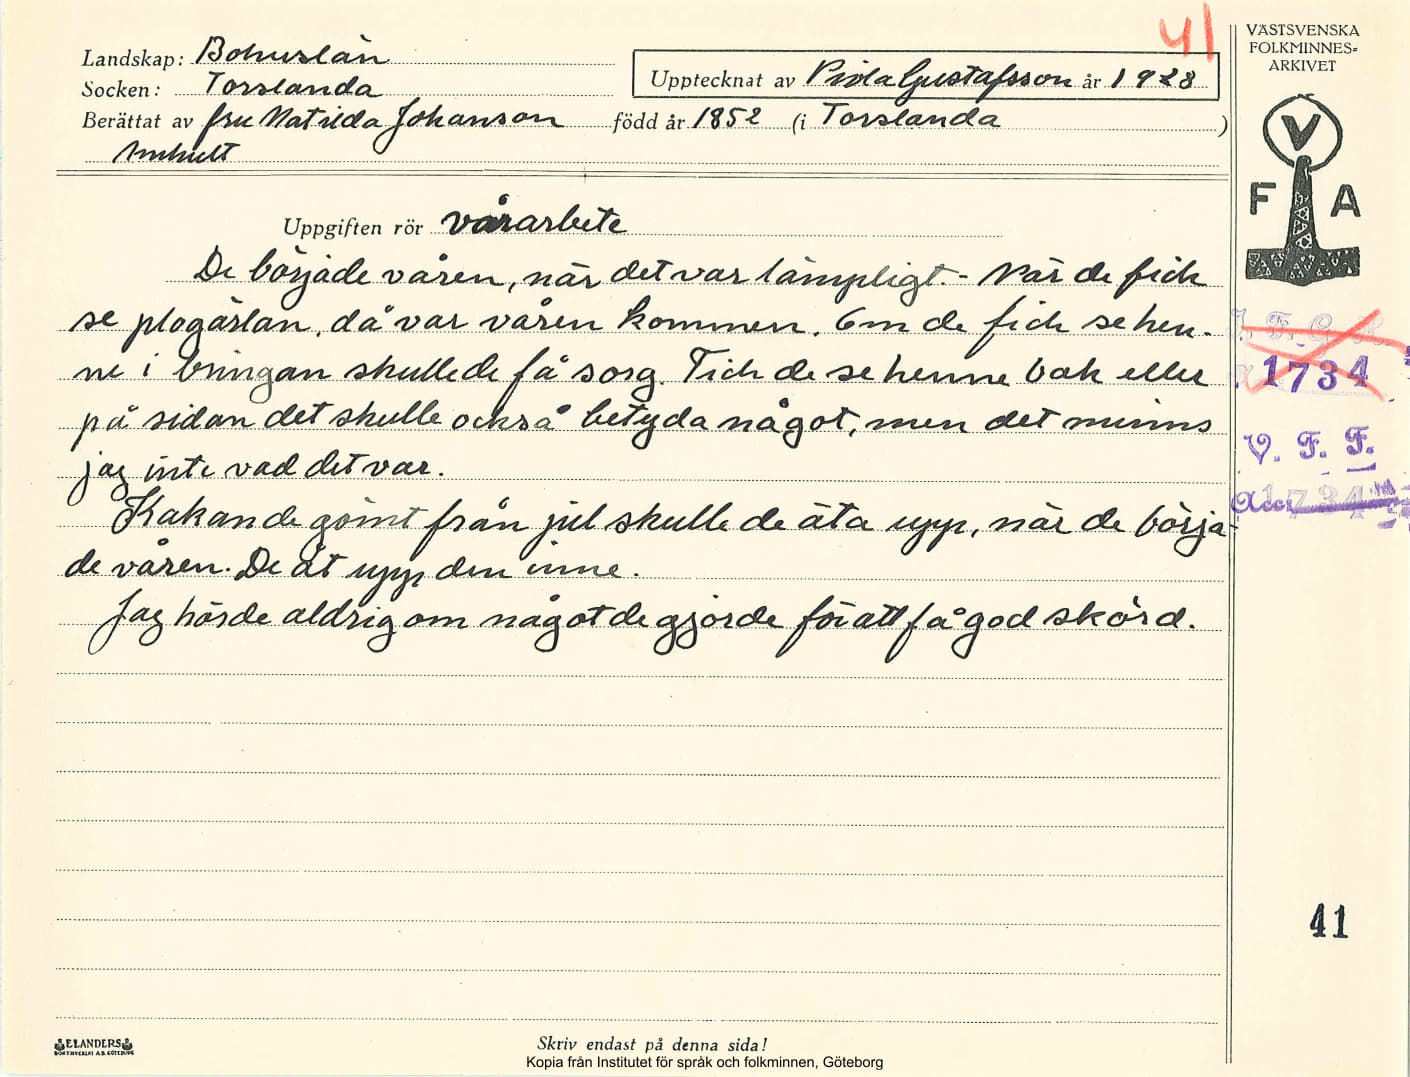 41
VÄSTSVENSKA
FOLKMINNES=
ARKIVET
V
F A
Landskap: Bohuslän
Socken: Torslanda
Upptecknat av Gustafsson år 1928
Berättat av fru Matilda Johanson född år 1852 (i Torslanda )
Uppgiften rör vårarbete
De började våren, när det var lämpligt. - När de fick
se plogärlan, då var våren kommen. Om de fick se hen-
ne i bringan skulle de få sorg. Fick de se henne bak eller
på sidan det skulle också betyda något, men det minns
jag inte vad det var.
Kakan de gömt från jul skulle de äta upp, när de börja-
de våren. De åt upp den inne.
Jag hörde aldrig om något de gjorde för att få god skörd.
I. F. G. H.
1734
V. F. F.
Acc. 1734
41
ELANDERS
BOKTRYCKERI A.B. GÖTEBORG
Skriv endast på denna sida!
Kopia från Institutet för språk och folkminnen, Göteborg